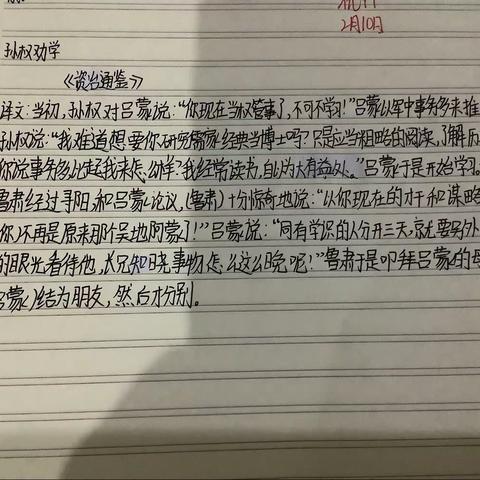 2月10日
孙权劝学
《资治通鉴》
译文:当初,孙权对吕蒙说:“你现在当权管事了,不可不学习!”吕蒙以军中事务多来推
孙权说:“我难道想要你研究儒家经典当博士吗?只是应当粗略的阅读,了解历
你说事务多,比起我来怎么样?我经常读书,自认为大有益处。”吕蒙于是开始学习。
鲁肃经过寻阳,和吕蒙论议,(鲁肃)十分惊奇地说:“以你现在的才干和谋略
你)不再是原来那个吴地阿蒙了!”吕蒙说:“同有学识的人分开三天,就要另外
的眼光看待他,长兄知晓事物怎么这么晚呢!”鲁肃于是叩拜吕蒙的母
吕蒙)结为朋友,然后才分别。